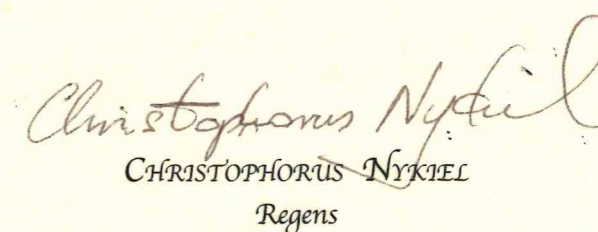 Christophorus Nykiel
CHRISTOPHORUS NYKIEL
Regens